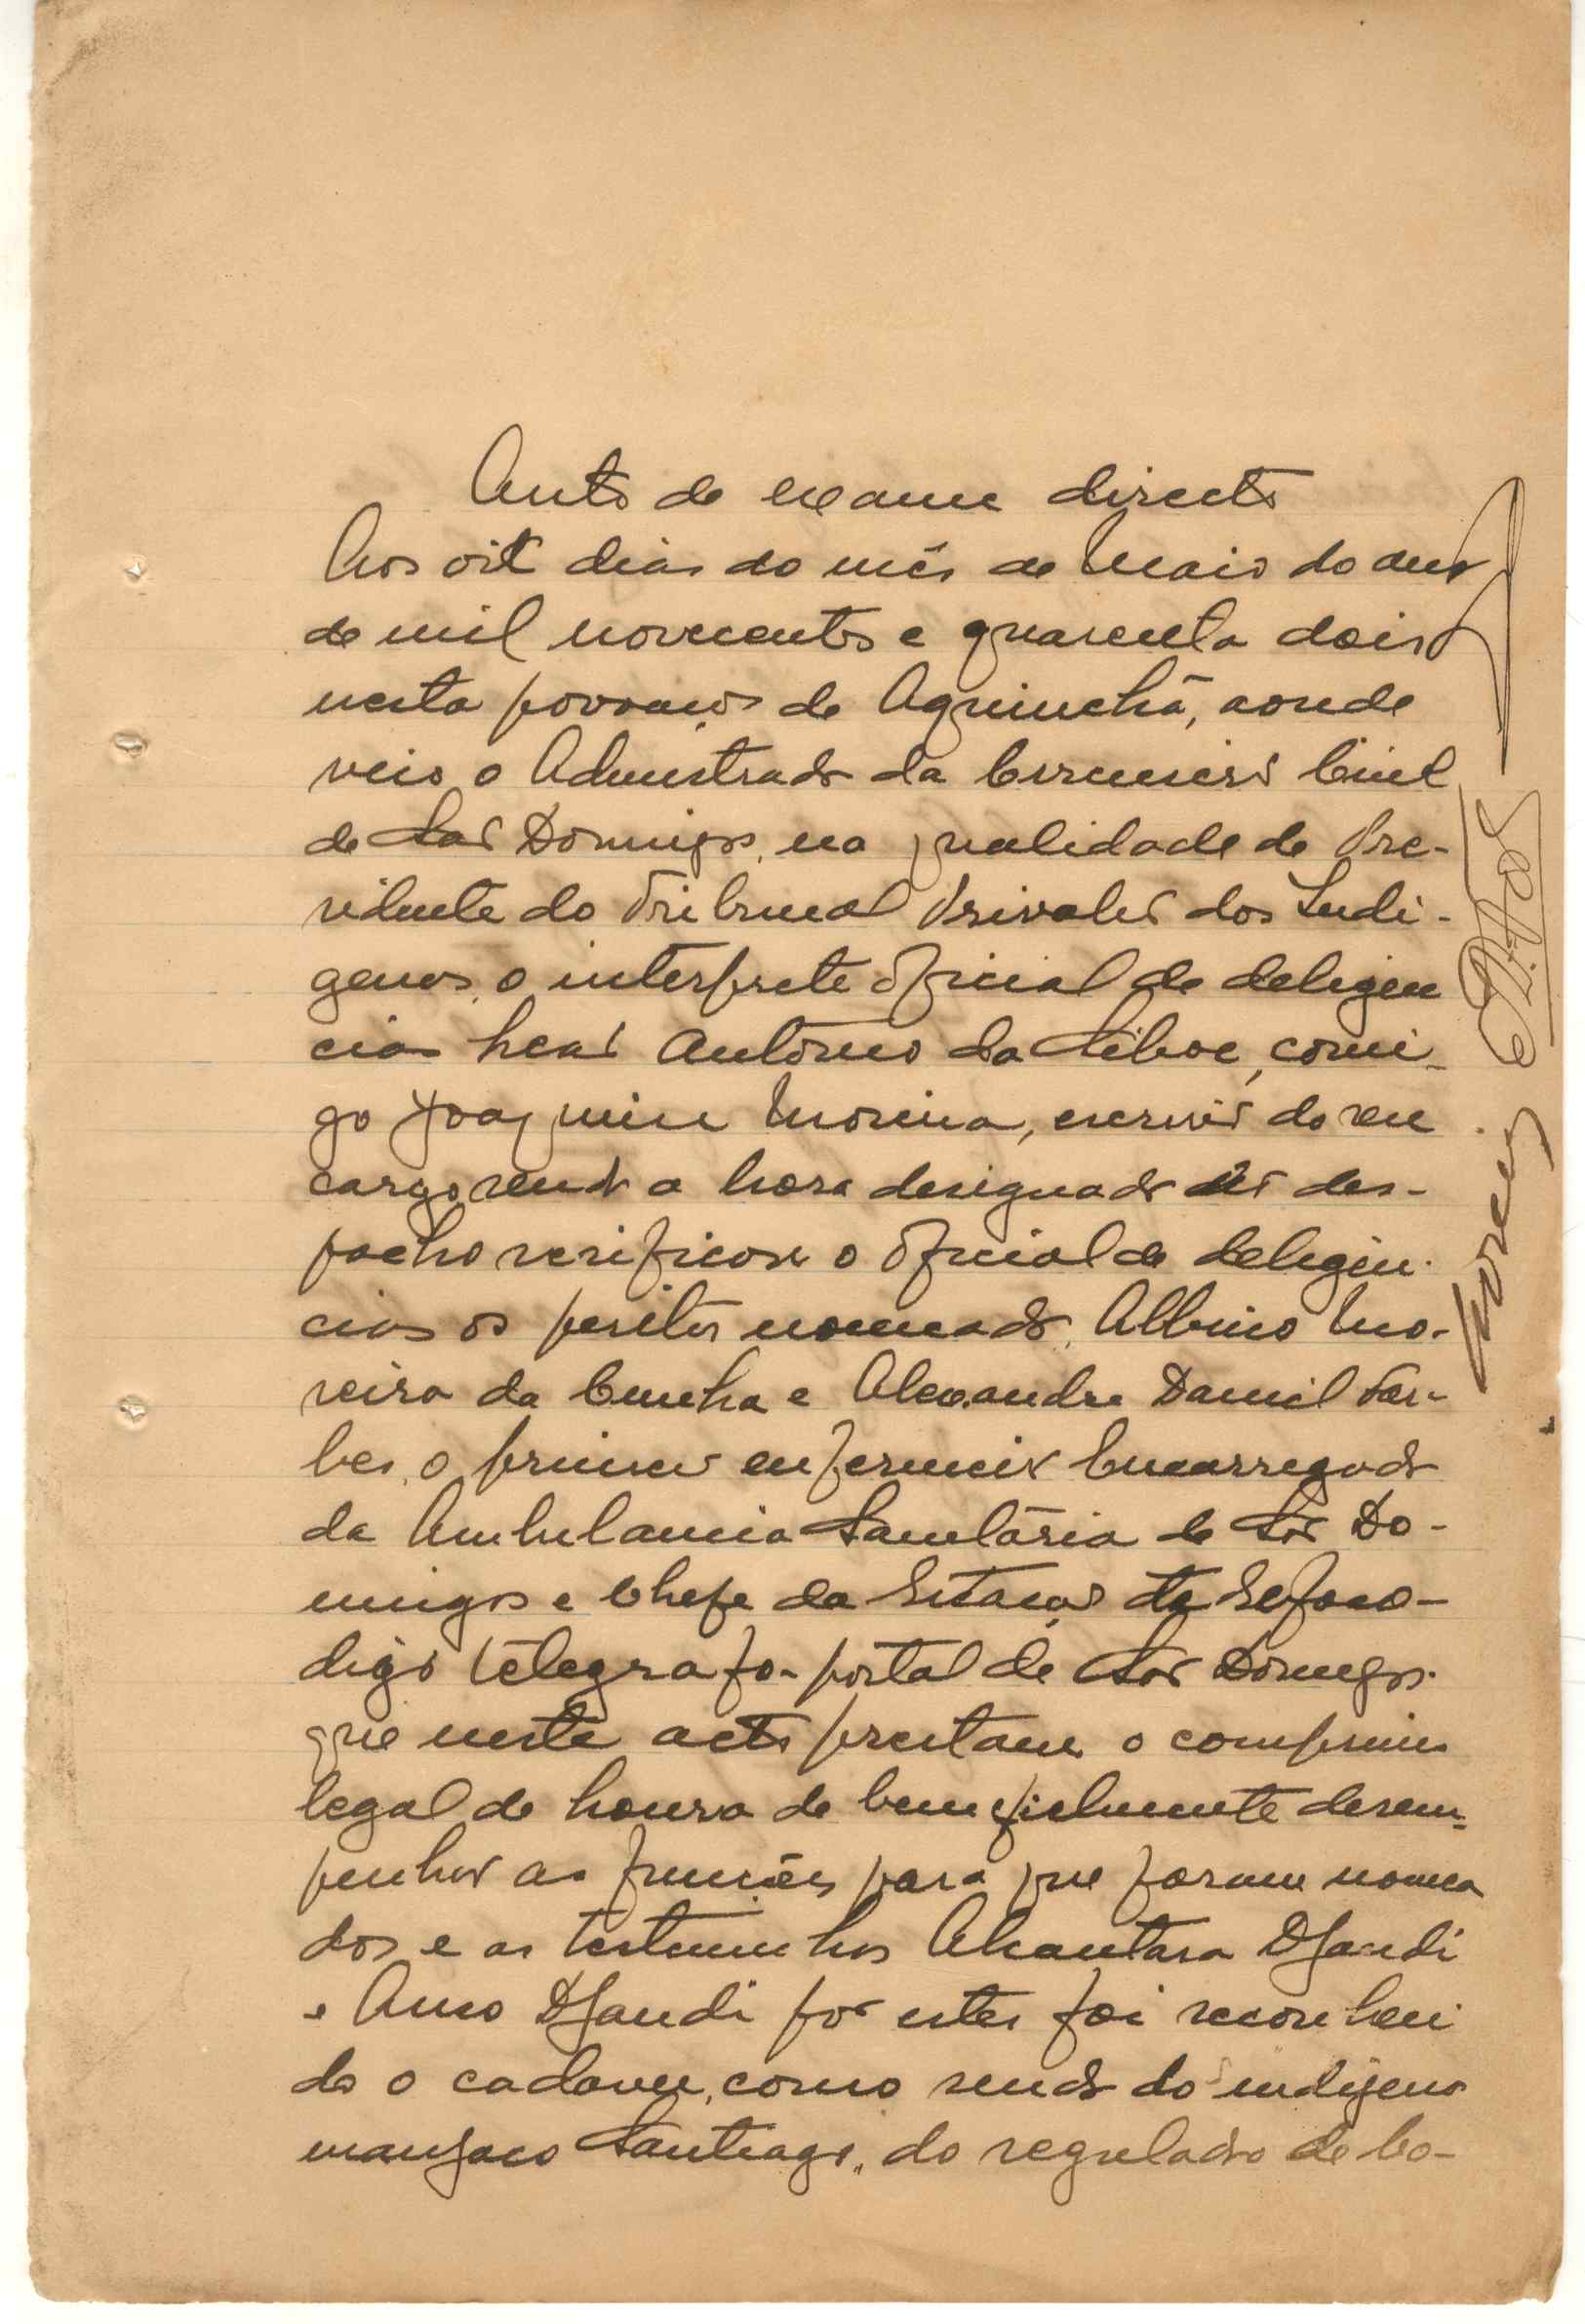 Auto de exame directo
Aos oito dias do mês de Maio do ano
de mil novecentos e quarenta dois
nesta povoação de Aquinchá, aonde
veio o Admnistrador da Circunscrição Civil
de São Domingos, na qualidade de Pre-
sidente do Tribunal Privativo dos Indi-
genas, o interprete oficial de deligen
cias António da Silva, comi-
go Joaquim Moreira, escrivão do seu
cargo, sendo a hora designado des-
pacho verificou o oficial de deligên-
cias os peritos nomeados, Albino Mo-
reira da Cunha e Alexandre Daniel For-
bes, o primeiro enfermeiro Encarregado
da Ambulancia Sanitária de São Do-
mingos e Chefe da Estação
telegrafo-postal de São Domingos.
que neste acto prestam o compromisso
legal de honra de bem fielmente desem-
penhar as funções para que foram nomea
dos, e as testemunhas Alcantara Djandi
e Djandi por estes foi reconheci
do o cadaver, como sendo do indigena
manjaco Santiago, do regulado de Co-